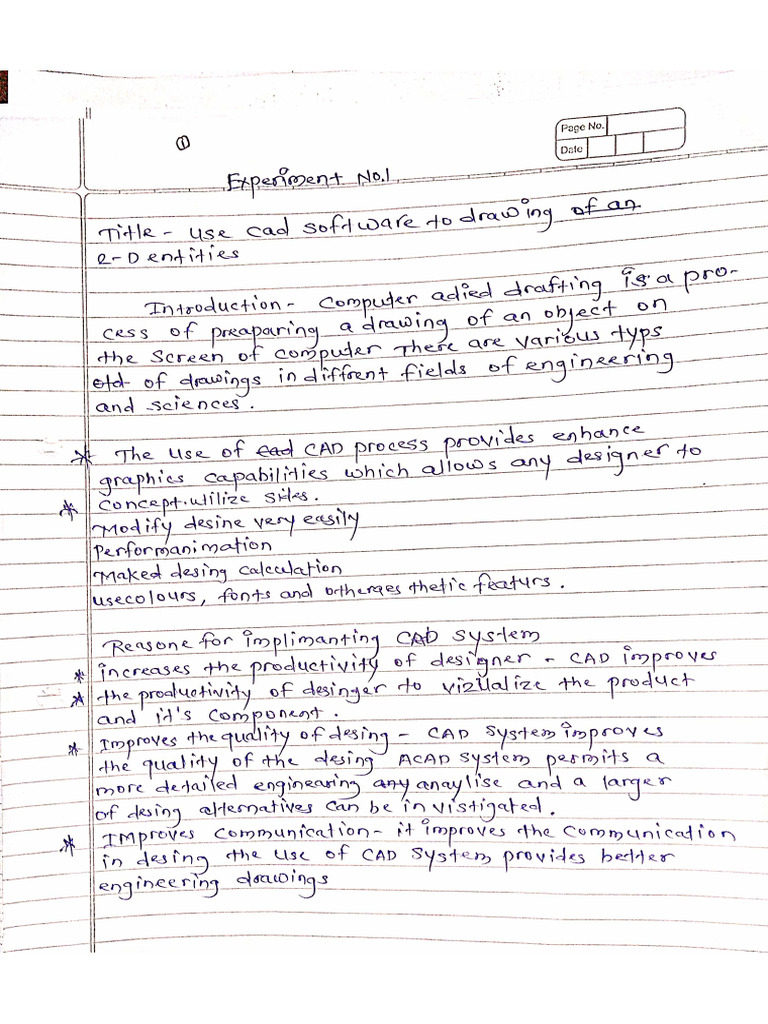 ①
Page No.
Date
Experiment No.1
Title - use cad software to drawing of an
2-D entities
Introduction - computer adied drafting is a pro-
cess of preaparing a drawing of an object on
the screen of computer There are various typs
of drawings in diffrent fields of engineering
and sciences.
* The use of CAD process provides enhance
graphics capabilities which allows any designer to
* concept.utilize
Modify desine very easily
Performanimation
Maked desing calculation
usecolours, fonts and otheraes thetic featurs.
Reasone for implimanting CAD system
* increases the productivity of designer - CAD improves
* the productivity of desinger to vizualize the product
and it's component.
* Improves the quality of desing - CAD system improves
the quality of the desing ACAD system permits a
more detailed engineering any anaylise and a larger
of desing alternatives can be in vistigated.
* IMproves communication - it improves the communication
in desing the use of CAD system provides better
engineering drawings